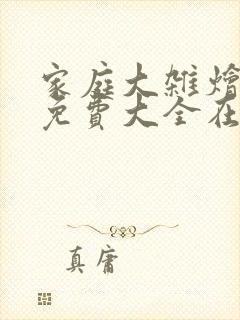 家庭大雑燴
免費大全在
真庸